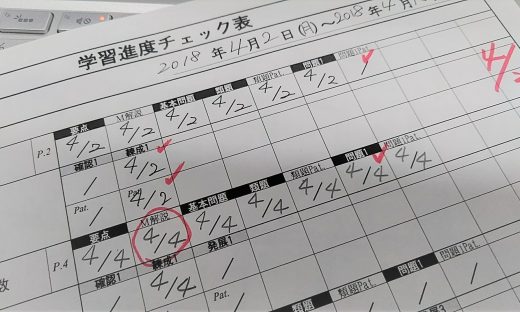 学習進度チェック表
2018年4月2日(月)～2018年4月
P.2 要点 M解説 基本問題 類題 類題Pat. 問題1 問題1Pat.
4/2 4/2 4/2 4/2 4/2 4/2 /
確認1 練成1
/ 4/2
Pat. Pat.
/ 4/2
数 P.4 要点 M解説 基本問題 類題 類題Pat. 問題1 問題1Pat.
4/4 4/4 4/4 4/4 4/4 4/4 4/4
確認1 練成1 発展1
/ 4/4 /
Pat. Pat.
類題 類題Pat. 問題1 問題1Pat.
/ / / /